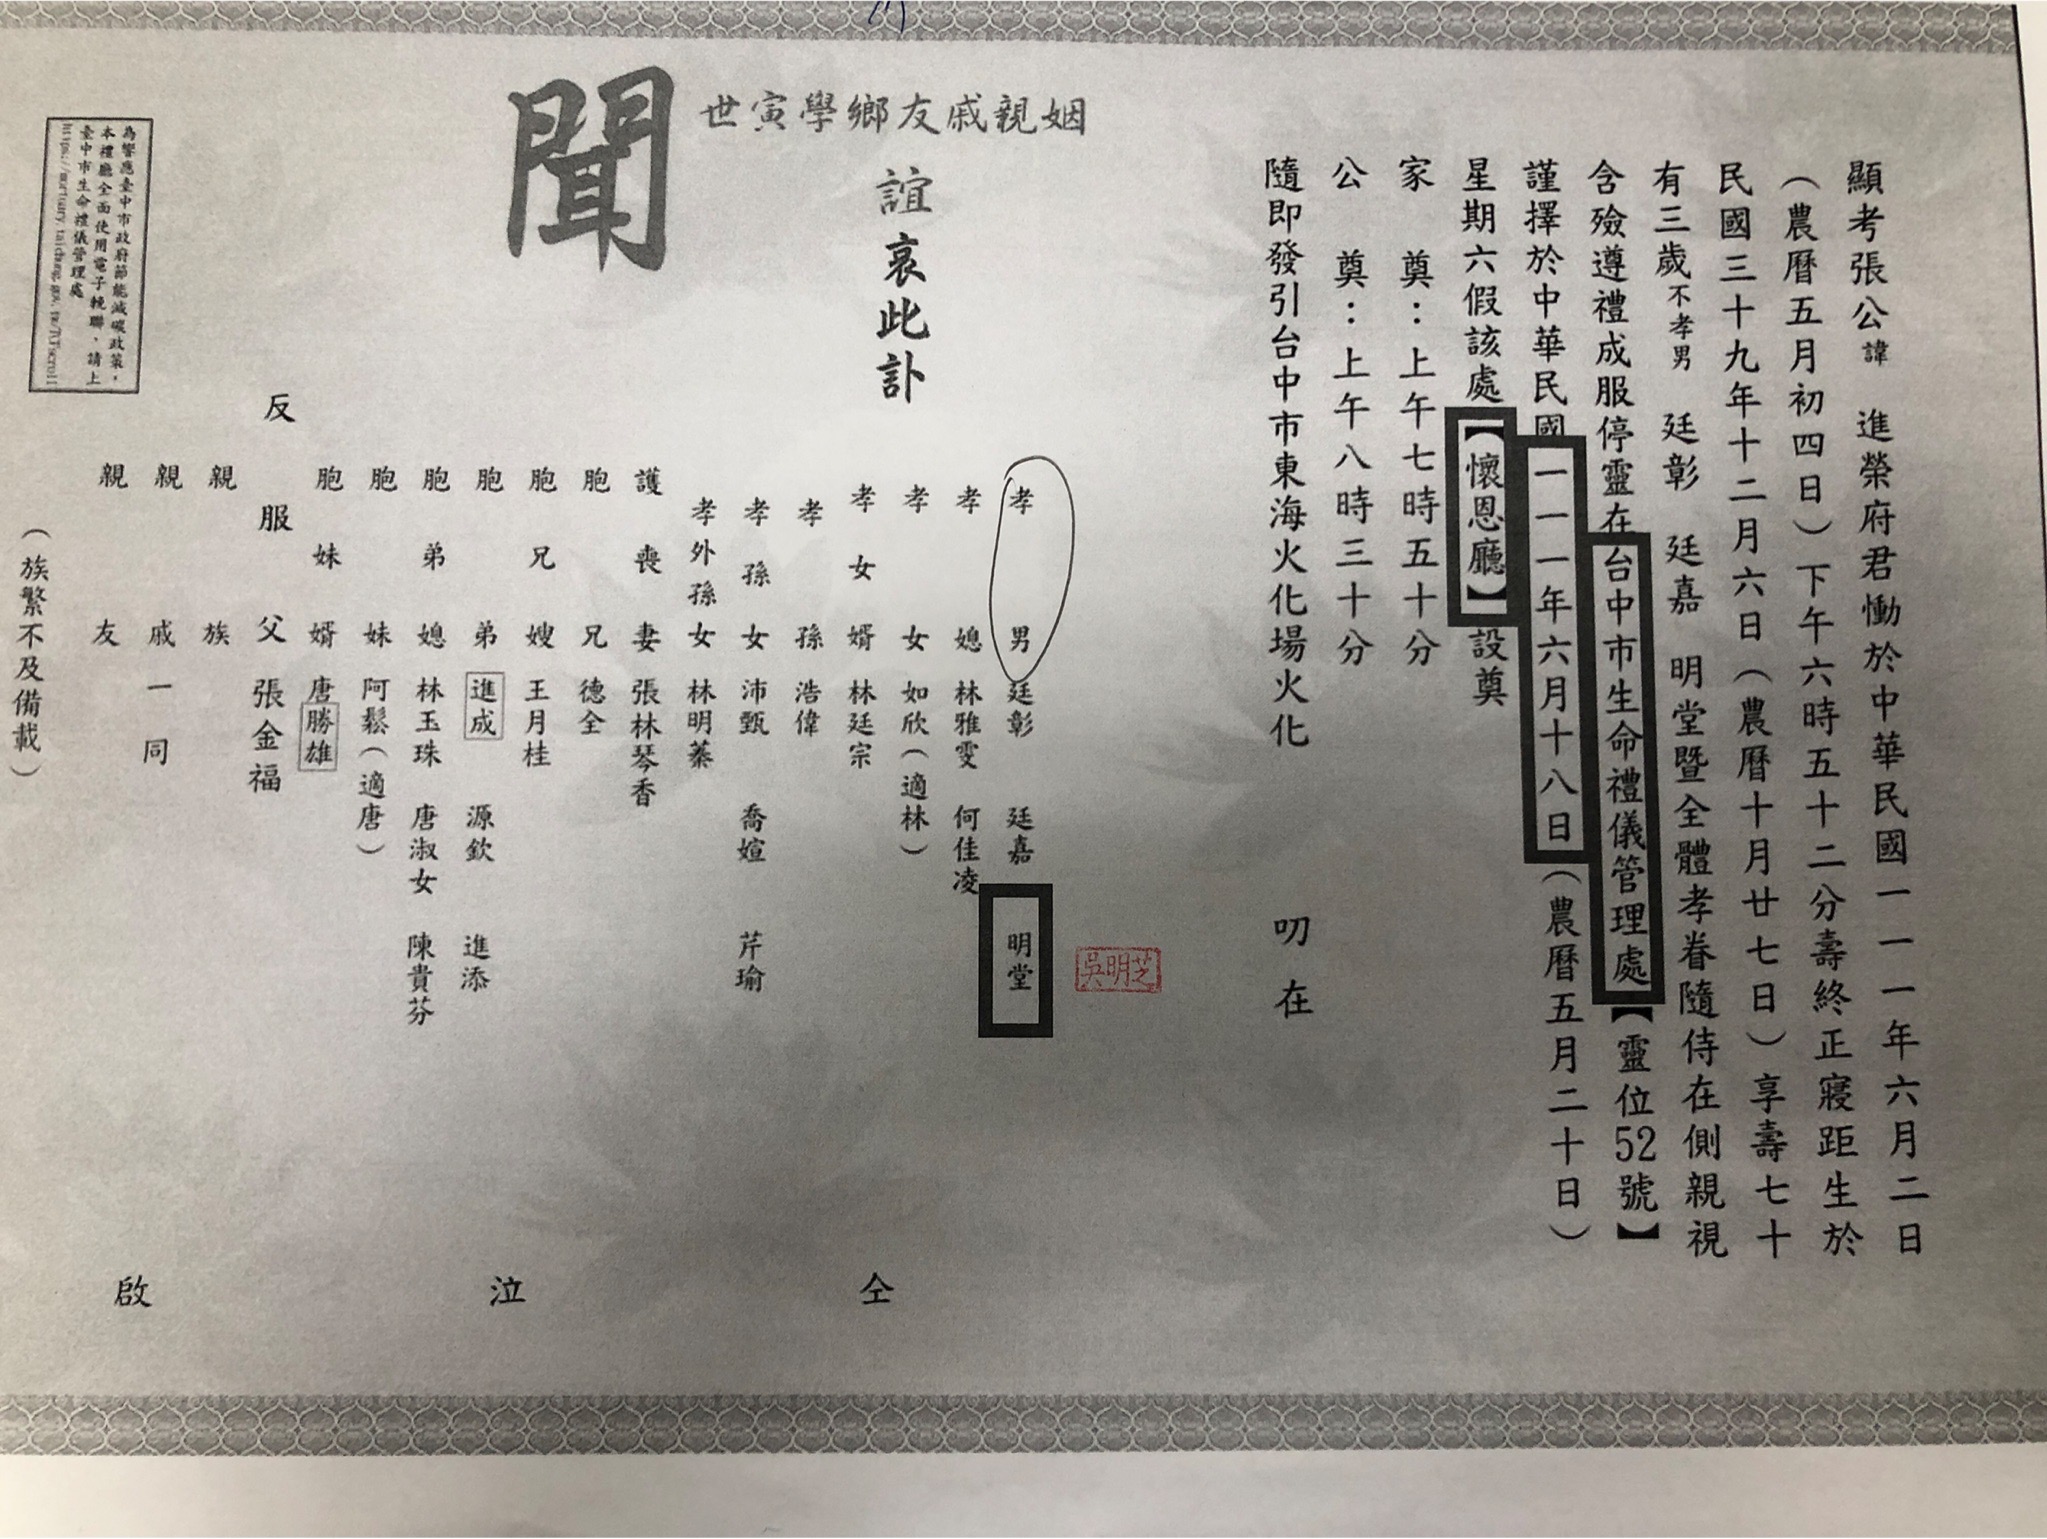 顯考張公諱　進榮府君慟於中華民國一一一年六月二日
（農曆五月初四日）下午六時五十二分壽終正寢距生於
民國三十九年十二月六日（農曆十月廿七日）享壽七十
有三歲不孝男　廷彰　廷嘉　明堂暨全體孝眷隨侍在側親視
含殮遵禮成服停靈在台中市生命禮儀管理處【靈位52號】
謹擇於中華民國一一一年六月十八日（農曆五月二十日）
星期六假該處【懷恩廳】設奠
家　奠：上午七時五十分
公　奠：上午八時三十分
隨即發引台中市東海火化場火化
叨在
姻親戚友鄉學寅世
誼哀此訃
聞
孝男　廷彰　廷嘉　明堂
吳明芝
孝媳　林雅雯　何佳凌
孝女　如欣（適林）
孝女婿　林廷宗
孝孫　浩偉
孝孫女　沛甄　喬媗　芹瑜
孝外孫女　林明蓁
護喪妻　張林琴香
胞兄　德全
胞兄嫂　王月桂
胞弟　進成　源欽　進添
胞弟媳　林玉珠　唐淑女　陳貴芬
胞妹　阿鬆（適唐）
胞妹婿　唐勝雄
反服父　張金福
親族
親戚一同
親友
（族繁不及備載）
仝
泣
啟
為響應臺中市政府節能減碳政策，
本禮廳全面使用電子輓聯，請上
臺中市生命禮儀管理處
https://mortuary.taichung.gov.tw/ATscroll